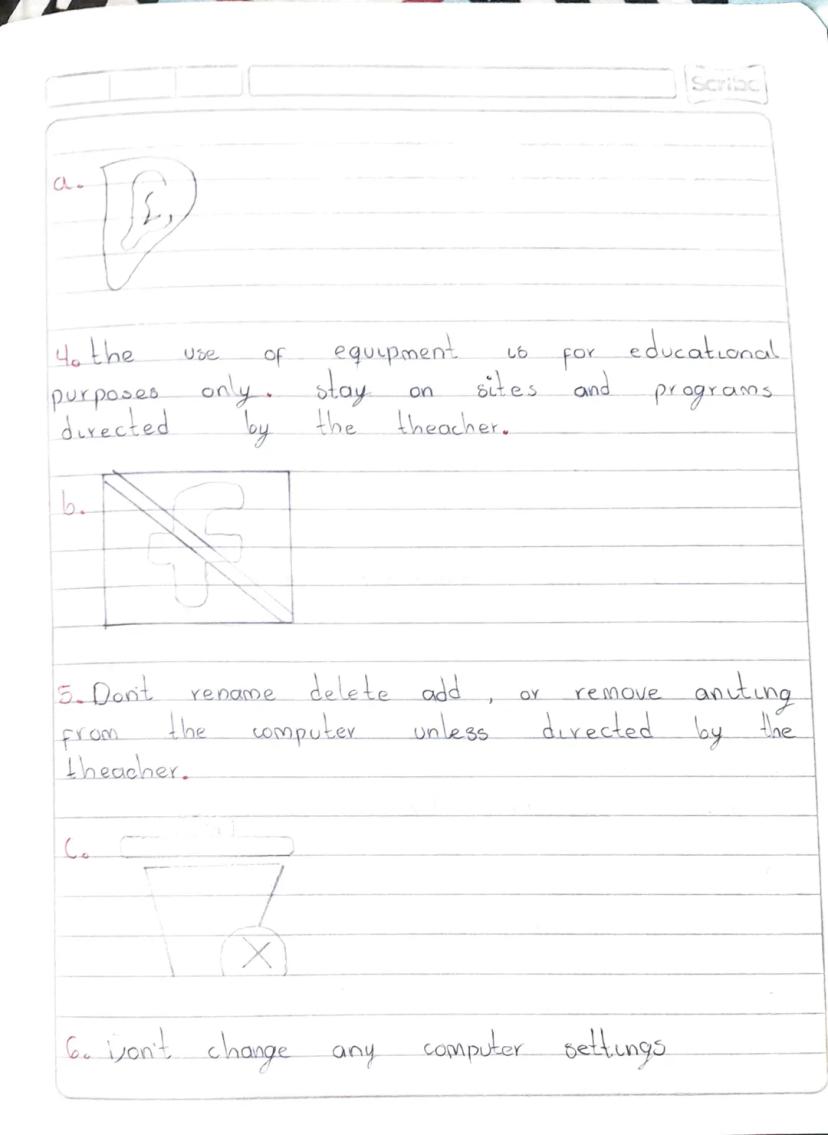 Scribe
a.
4. the use of equipment is for educational
purposes only. stay on sites and programs
directed by the theacher.
b.
f
5. Don't rename delete add , or remove aniting
from the computer unless directed by the
theacher.
c.
X
6. Don't change any computer settings